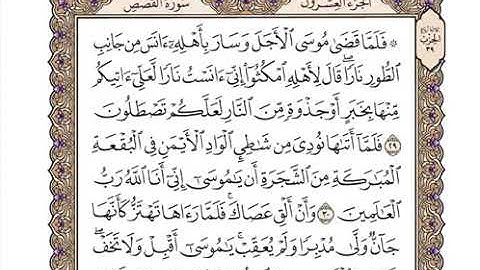 الجزء العشرون سورة القصص
۞ فَلَمَّا قَضَىٰ مُوسَى ٱلْأَجَلَ وَسَارَ بِأَهْلِهِۦٓ ءَانَسَ مِن جَانِبِ
ٱلطُّورِ نَارًا قَالَ لِأَهْلِهِ ٱمْكُثُوٓا۟ إِنِّىٓ ءَانَسْتُ نَارًا لَّعَلِّىٓ ءَاتِيكُم
مِّنْهَا بِخَبَرٍ أَوْ جَذْوَةٍ مِّنَ ٱلنَّارِ لَعَلَّكُمْ تَصْطَلُونَ
٢٩ فَلَمَّآ أَتَىٰهَا نُودِىَ مِن شَٰطِئِ ٱلْوَادِ ٱلْأَيْمَنِ فِى ٱلْبُقْعَةِ
ٱلْمُبَٰرَكَةِ مِنَ ٱلشَّجَرَةِ أَن يَٰمُوسَىٰٓ إِنِّىٓ أَنَا ٱللَّهُ رَبُّ
ٱلْعَٰلَمِينَ ٣٠ وَأَنْ أَلْقِ عَصَاكَ ۖ فَلَمَّا رَءَاهَا تَهْتَزُّ كَأَنَّهَا
جَآنٌّ وَلَّىٰ مُدْبِرًا وَلَمْ يُعَقِّبْ ۚ يَٰمُوسَىٰٓ أَقْبِلْ وَلَا تَخَفْ ۖ